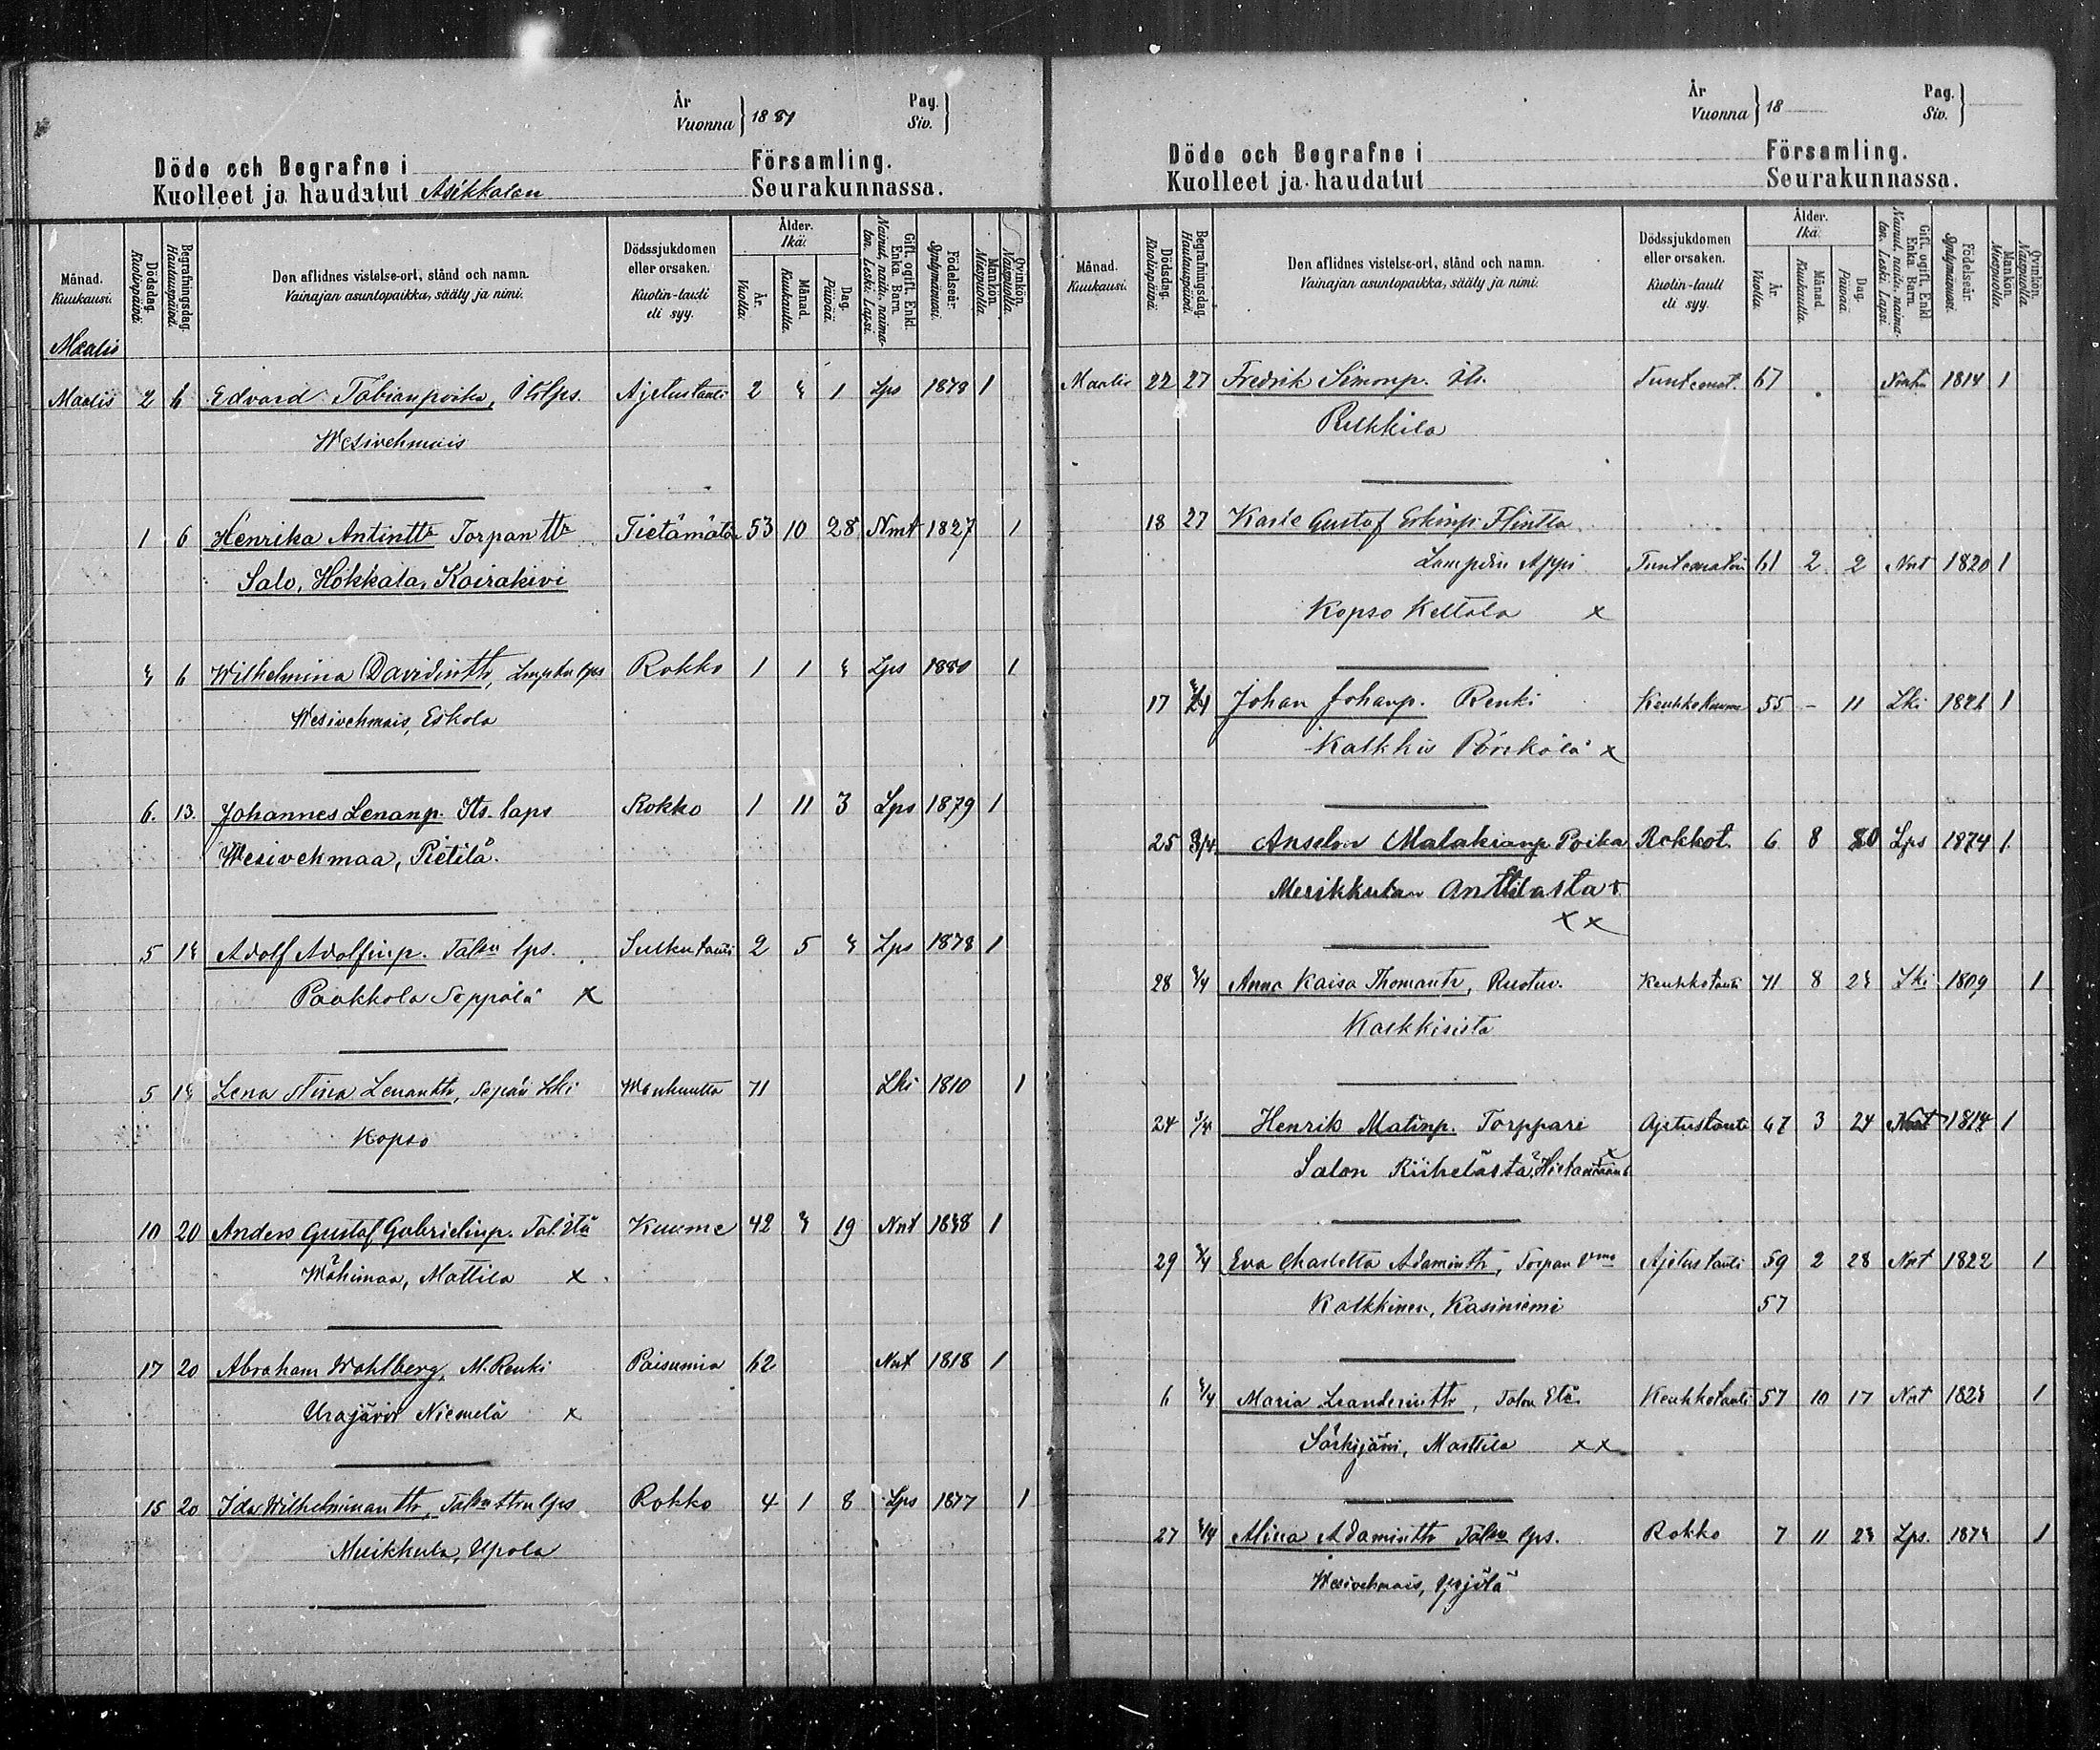 År
Vuonna } 1881 Pag.
Siv. }
Döde och Begrafne i Församling.
Kuolleet ja haudatut Asikkalan Seurakunnassa.
Månad. Kuukausi.
Dödsdag. Kuolinpäivä.
Begrafningsdag. Hautauspäivä.
Den aflidnes vistelse-ort, stånd och namn.
Vainajan asuntopaikka, sääty ja nimi.
Dödssjukdomen eller orsaken.
Kuolin-tauti eli syy.
Ålder. Ikä.
År. Vuotta.
Månad. Kuukautta.
Dag. Päivää.
Gift, ogift. Enkl. Enka. Barn.
Nainut, naitu, naimaton. Leski. Lapsi.
Födelseår. Syntymävuosi.
Mankön. Miespuolia.
Qvinkön. Naispuolia.
Maalis
Maalis 2 6 Edvard Tobianpoika, Itslps. Ajetustauti 2 4 1 Lps 1878 1
Wesivehmais
1 6 Henrika Antintr Torpan ttr Tietämätön 53 10 28 Nmt 1827 1
Salo, Hokkala, Koirakivi
4 6 Wilhelmina Davidintr, Lmpdn lps Rokko 1 1 4 Lps 1880 1
Wesivehmais, Eskola
6. 13. Johannes Lenanp. Its. laps Rokko 1 11 3 Lps 1879 1
Wesivehmaa, Pietilä.
5 14 Adolf Adolfinp. Talsn lps. Surkutauti 2 5 4 Lps 1878 1
Paakkola Seppälä x
5 14 Lena Stina Lenantr, Sepän Lski Wanhuutta 71 Lki 1810 1
Kopso
10 20 Anders Gustaf Gabrielinp. Tal. Itä Kuume 42 4 19 Nnt 1838 1
Wähimaa, Mattila x
17 20 Abraham Wahlberg, M. Renki Paisumia 62 Nnt 1818 1
Urajärvi Niemelä x
15 20 Ida Wilhelminantr, Talsn ttrn lps Rokko 4 1 8 Lps 1877 1
Muikkula, Upola
År
Vuonna } 18 Pag.
Siv. }
Döde och Begrafne i Församling.
Kuolleet ja haudatut Seurakunnassa.
Månad. Kuukausi.
Dödsdag. Kuolinpäivä.
Begrafningsdag. Hautauspäivä.
Den aflidnes vistelse-ort, stånd och namn.
Vainajan asuntopaikka, sääty ja nimi.
Dödssjukdomen eller orsaken.
Kuolin-tauti eli syy.
Ålder. Ikä.
År. Vuotta.
Månad. Kuukautta.
Dag. Päivää.
Gift, ogift. Enkl. Enka. Barn.
Nainut, naitu, naimaton. Leski. Lapsi.
Födelseår. Syntymävuosi.
Mankön. Miespuolia.
Qvinkön. Naispuolia.
Maalis 22 27 Fredrik Simonp. Its. Tuntemat. 67 1814 1
Pulkkila
18 27 Kaale Gustaf Erkinp. Flintta
Lampdin Appi Tuntematoin 61 2 2 Nnt 1820 1
Kopso Keltola x
17 Johan Johanp. Renki Keuhkokuume 55 - 11 Lki 1826 1
Kalkkis Pönkölä x
25 3/4 Anselm Malakianp. Poika Rokkot. 6 8 Lps 1874 1
Anttilasta x
x x
28 4/4 Anna Kaisa Thomantr, Ruotuv. Keuhkotauti 71 8 24 Lki 1809 1
Kalkkisista
24 3/4 Henrik Matinp. Torppari Ajetustauti 67 3 24 1814 1
Salon Riihelästä
29 4/4 Eva Charlotta Adamintr, Torpan Vmo Ajetus tauti 59 2 28 Nnt 1822 1
Kalkkinen, Kasiniemi 57
6 4/4 Maria Leanderintr, Talon Etä. Keuhkotauti 57 10 17 Nnt 1823 1
Särkijärvi, Marttila x x
27 4/4 Alina Adamintr Talsn lps. Rokko 7 11 24 Lps. 1873 1
Wesivehmais, Yrjölä